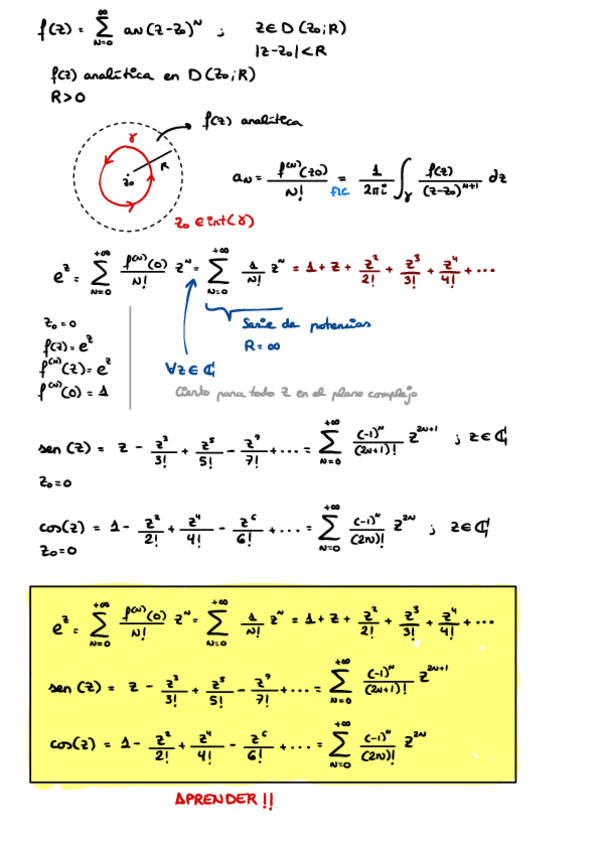 f(z) = ∑_{N=0}^{∞} a_N (z-z₀)^N ; z∈D(z₀;R)
|z-z₀|<R
f(z) analítica en D(z₀;R)
R>0
f(z) analítica
γ
R
z₀
a_N = f^{(N)}(z₀)/N! = 1/(2πi) ∫_γ f(z)/(z-z₀)^{N+1} dz
FIC
z₀ ∈ int(γ)
e^z = ∑_{N=0}^{+∞} f^{(N)}(0)/N! z^N = ∑_{N=0}^{+∞} 1/N! z^N = 1 + z + z²/2! + z³/3! + z⁴/4! + ...
z₀=0
f(z)=e^z
f^{(N)}(z)=e^z
f^{(N)}(0)=1
Serie de potencias
R=∞
∀z∈ℂ
Cierto para todo z en el plano complejo
sen(z) = z - z³/3! + z⁵/5! - z⁷/7! + ... = ∑_{N=0}^{+∞} (-1)^N/(2N+1)! z^{2N+1} ; z∈ℂ
z₀=0
cos(z) = 1 - z²/2! + z⁴/4! - z⁶/6! + ... = ∑_{N=0}^{+∞} (-1)^N/(2N)! z^{2N} ; z∈ℂ
z₀=0
e^z = ∑_{N=0}^{+∞} f^{(N)}(0)/N! z^N = ∑_{N=0}^{+∞} 1/N! z^N = 1 + z + z²/2! + z³/3! + z⁴/4! + ...
sen(z) = z - z³/3! + z⁵/5! - z⁷/7! + ... = ∑_{N=0}^{+∞} (-1)^N/(2N+1)! z^{2N+1}
cos(z) = 1 - z²/2! + z⁴/4! - z⁶/6! + ... = ∑_{N=0}^{+∞} (-1)^N/(2N)! z^{2N}
APRENDER!!